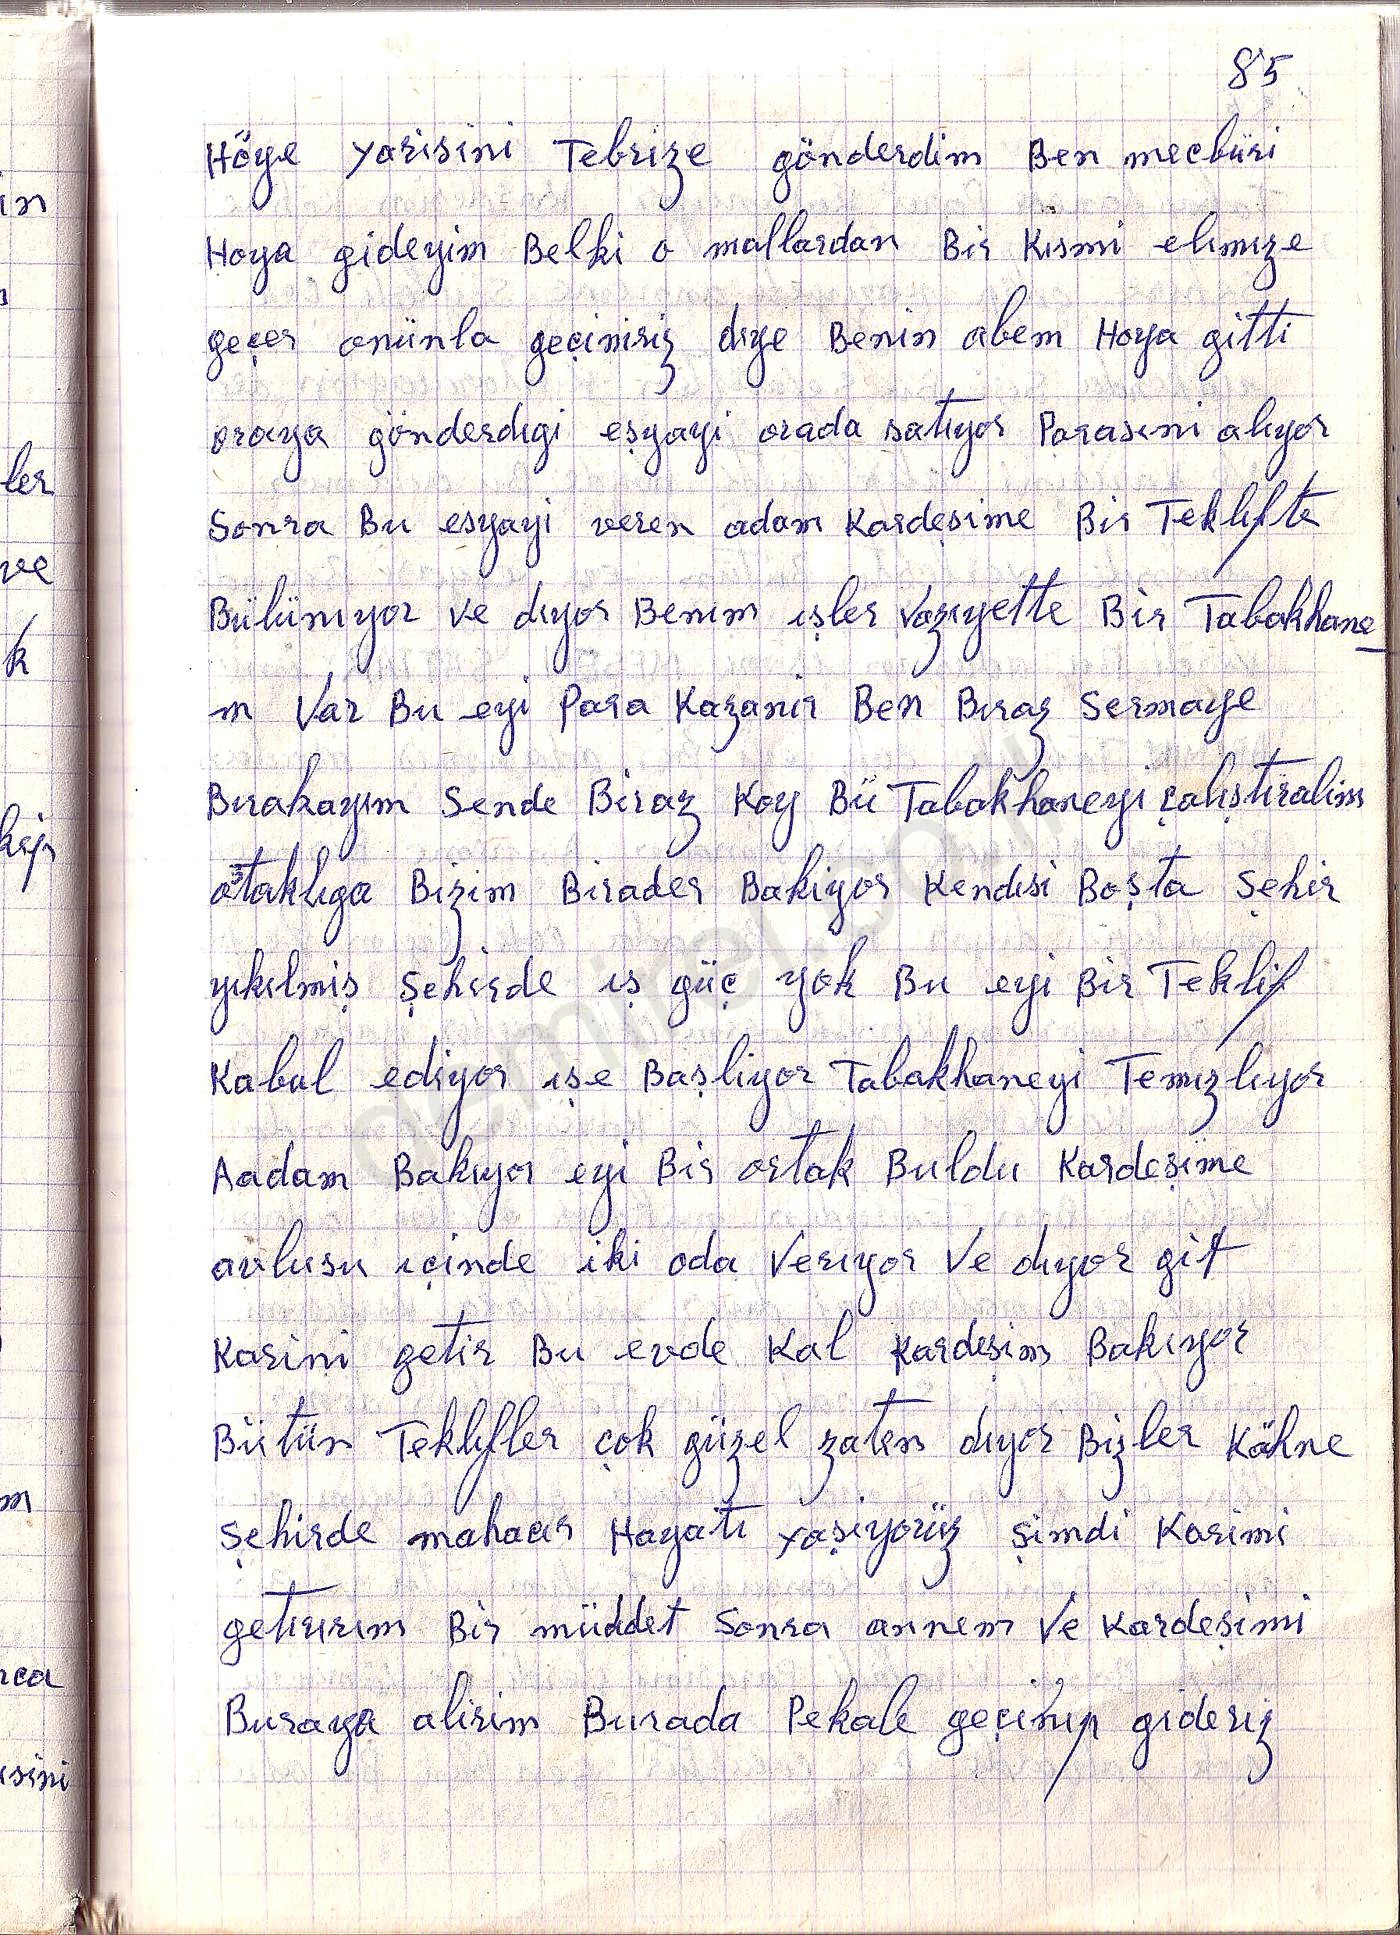 85
Höye yarisini Tebrize gönderdim Ben mecbüri
Hoya gideyim Belki o mallardan Bir Kısmi elımıze
geçer onünla geçiniriz dıye Benin abem Hoya gitti
oraya gönderdıgi eşyayi orada satıyor Parasıni alıyor
Sonra Bu esyayi veren adam Kardeşime Bir Teklıfte
Bülünıyor ve dıyor Benım ışler vazıyette Bir Tabakhane
m Var Bu eyi Para Kazanir Ben Bıraz Sermaye
Bırakayım Sende Biraz Koy Bü Tabakhaneyi çalıştiralim
otaklıga Bizim Birader Bakiyor Kendısi Boşta Şehir
yıkılmiş Şehirde ış güç yok Bu eyi Bir Teklif
Kabul ediyor ışe Başlıyor Tabakhaneyi Temızlıyor
Aadam Bakıyor eyi Bir ortak Buldu Kardeşime
avlusu ıçinde iki oda Verıyor Ve dıyor git
Karini getir Bu evde Kal Kardeşim Bakıyor
Bütün Teklıfler çok güzel zaten dıyor Bizler Köhne
Şehirde mahacır Hayatı yaşiyorüz şimdi Karimi
getırırım Bir müddet Sonra annem Ve Kardeşimi
Buraya alirim Burada Pekale geçinıp giderız
in
ler
ve
k
m
rca
ısini
demirel.po